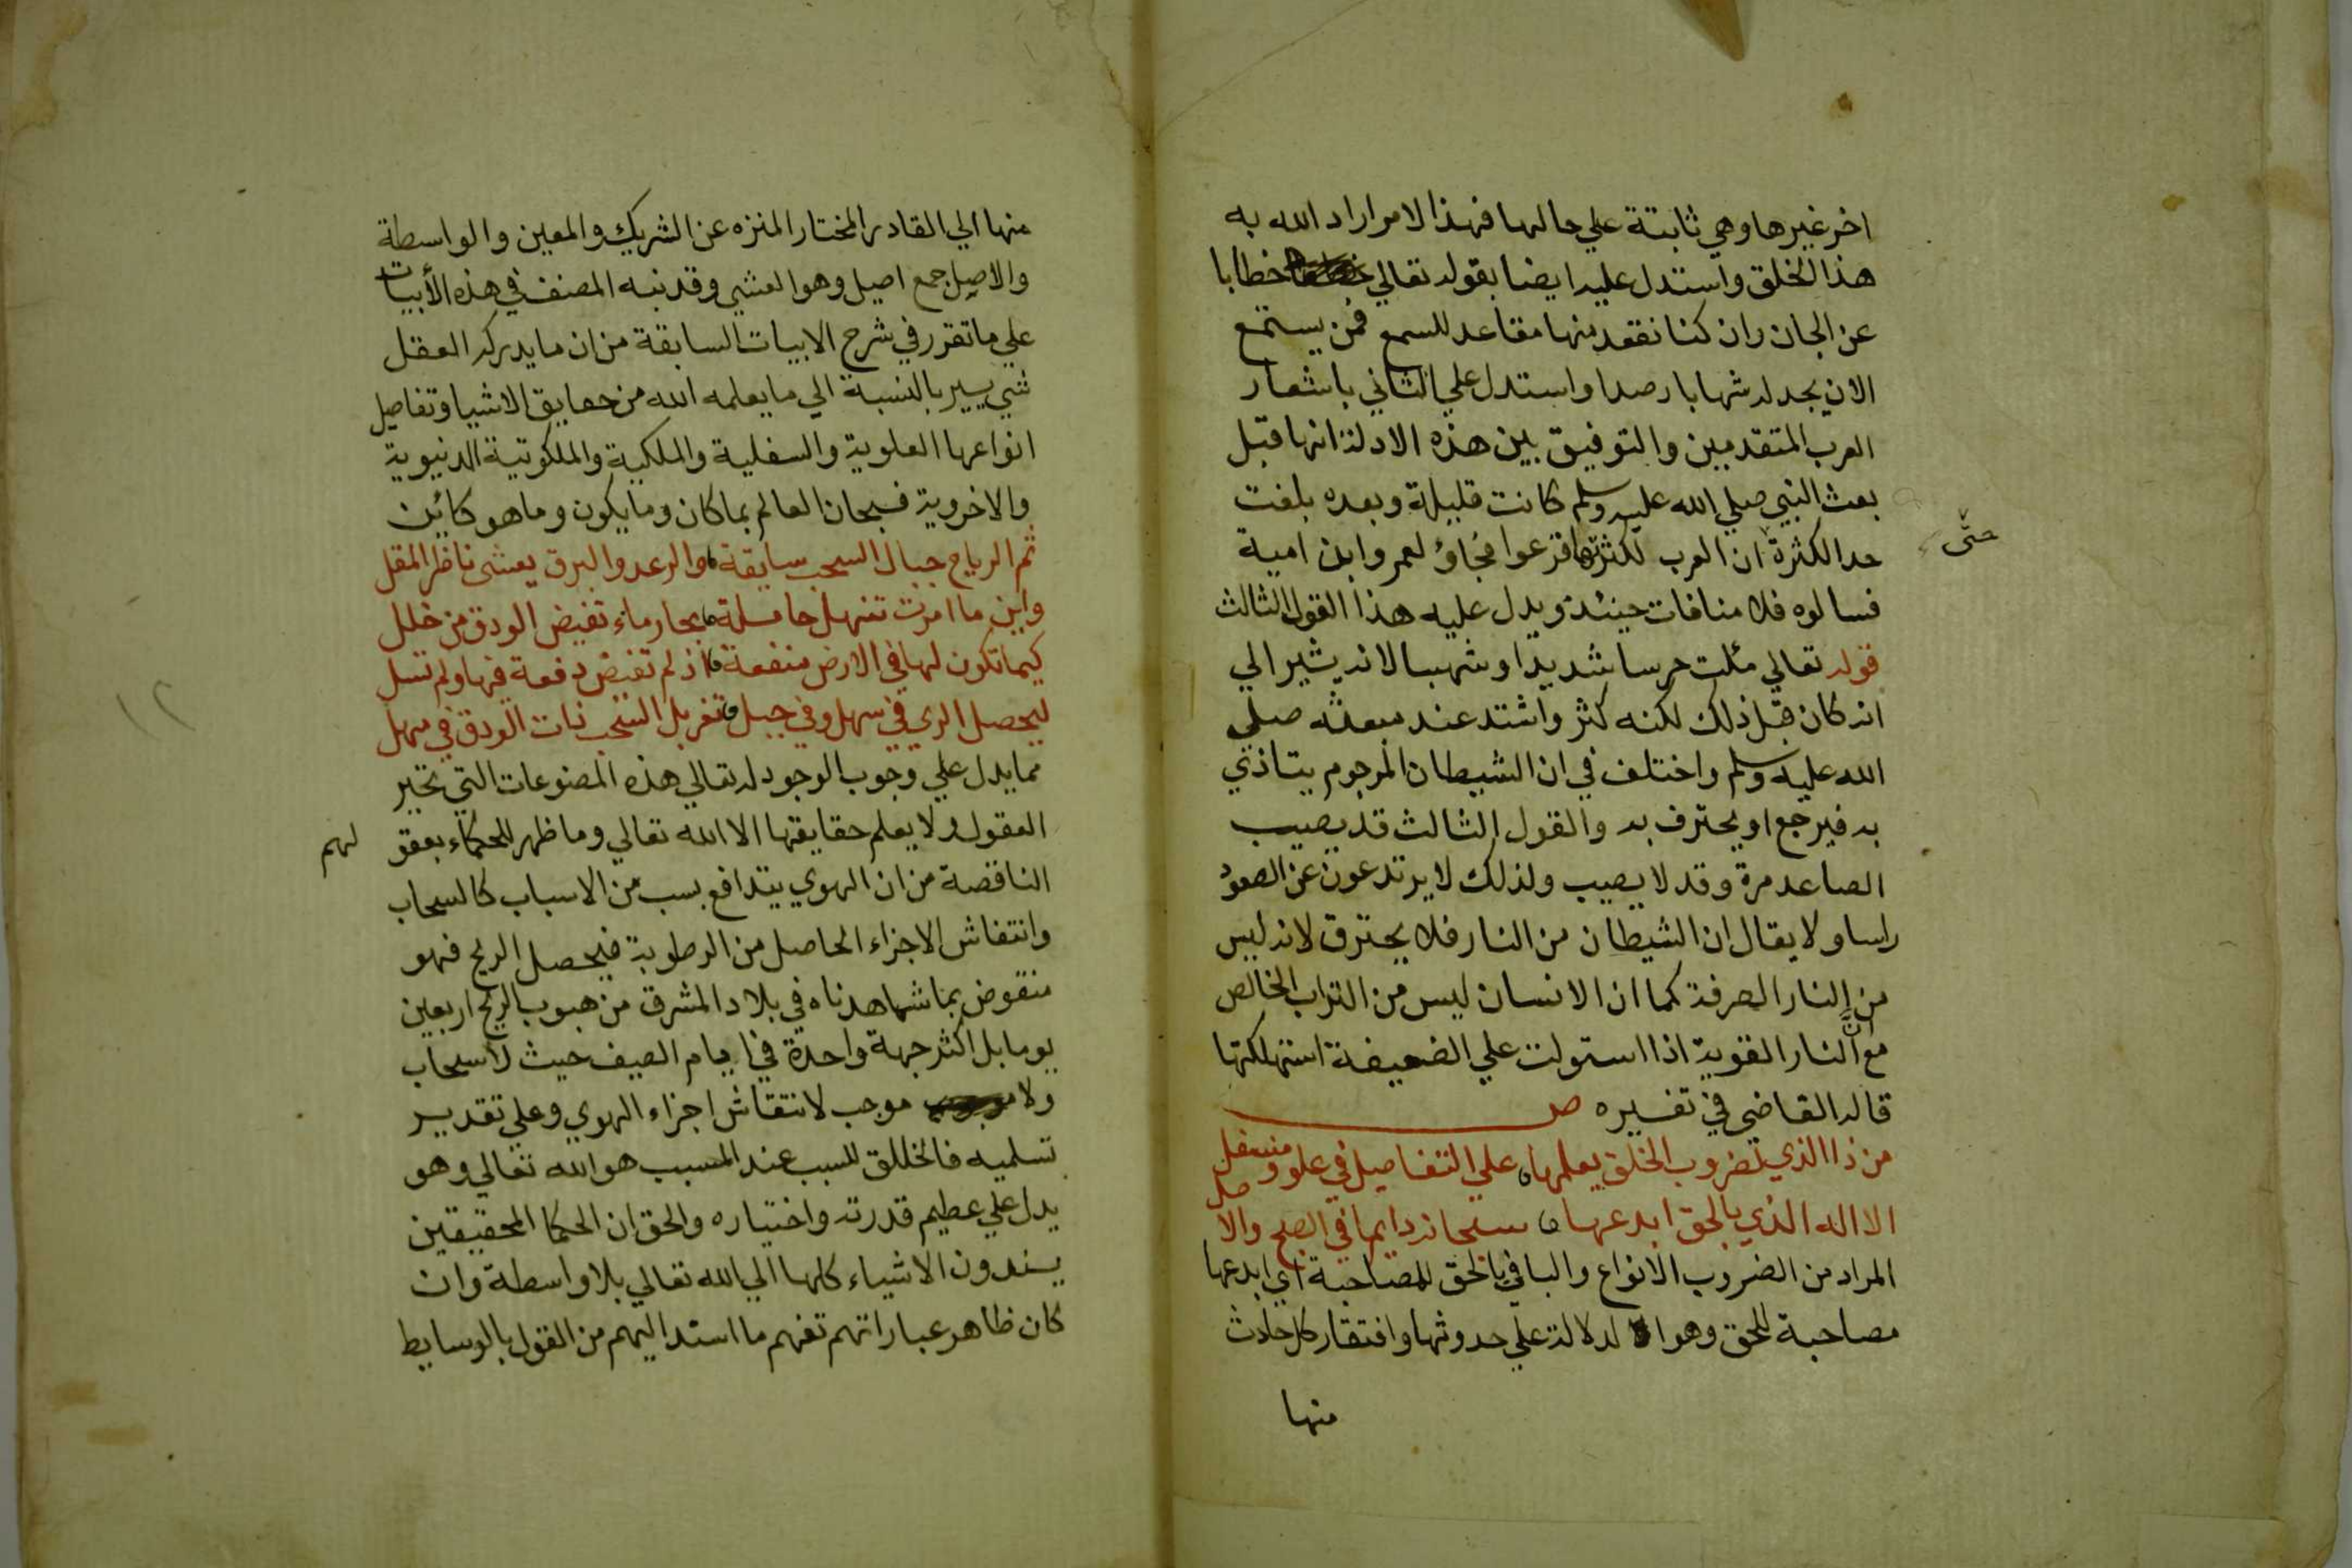 اخر غيرها وهي ثابتة علي حالها فهذا الامر اراد الله به
هذا الخلق واستدل عليه ايضا بقوله تعالي خطابا
عن الجان وان كنا نقعد منها مقاعد للسمع فمن يستمع
الان يجد له شهابا رصدا واستدل علي الثاني باشعار
العرب المتقدمين والتوفيق بين هذه الادلة انها قبل
بعث النبي صلي الله عليه وسلم كانت قليلة وبعده بلغت
حد الكثرة ان العرب لكثرتها فزعوا فجاؤ لعمرو ابن امية
حتى
فسالوه فلا منافات حينئذ ويدل عليه هذا القول الثالث
قوله تعالي ملئت حرسا شديدا وشهبا لانه يشير الي
انه كان قبل ذلك لكنه كثر واشتد عند مبعثه صلي
الله عليه وسلم واختلف في ان الشيطان المرجوم يتاذي
به فيرجع او يحترف به والقول الثالث قد يصيب
الصاعد مرة وقد لا يصيب ولذلك لا يرتدعون عن الصعود
راسا ولا يقال ان الشيطان من النار فلا يحترق لانه ليس
من النار الصرفة كما ان الانسان ليس من التراب الخالص
مع ان النار القوية اذا استولت علي الضعيفة استهلكتها
قاله القاضي في تفسيره ص
من ذا الذي بضروب الخلق يعلمها علي التفاصيل في علو ومنسفل
الا اله الذي بالحق ابدعها سبحانه دايما في الصبح والاصل
المراد من الضروب الانواع والبا في بالحق للمصاحبة اي ابدعها
مصاحبة للحق وهو الدلالة علي حدوثها وافتقار كل حادث
منها
منها الي القادر المختار المنزه عن الشريك والمعين والواسطة
والاصيل جمع اصيل وهو العشي وقد نبه المصنف في هذه الأبيات
علي ما تقرر في شرح الابيات السابقة من ان ما يدركه العقل
شي يسير بالنسبة الي ما يعلمه الله من حقايق الاشيا وتفاصيل
انواعها العلوية والسفلية والملكية والملكوتية الدنيوية
والاخروية فسبحان العالم بما كان وما يكون وما هو كائن
ثم الرياح جبال السحب سايقة والرعد والبرق يعشى ناظر المقل
واين ما امرت تنهل حاملة بحار ماء تفيض الودق من خلل
كيما تكون لها في الارض منفعة اذ لم تفيض دفعة فيها ولم تسل
ليحصل الري في سهل وفي جبل تغربل السحب ذات الودق في مهل
مما يدل علي وجوب الوجود له تعالي هذه المصنوعات التي تحير
العقول ولا يعلم حقايقها الا الله تعالي وما ظهر للحكماء بعقولهم
الناقصة من ان الهوي يتدافع بسب من الاسباب كالسحاب
وانتفاش الاجزاء الحاصل من الرطوبة فيحصل الريح فهو
منقوض بما شاهدناه في بلاد المشرق من هبوب الريح اربعين
يوما بل اكثر جهة واحدة في ايام الصيف حيث لا سحاب
ولا موجب لانتقاش اجزاء الهوي وعلي تقدير
تسليمه فالخالق للسبب عند المسبب هو الله تعالي وهو
يدل علي عطيم قدرته واختياره والحق ان الحكما المحقيقين
يسندون الاشياء كلها الي الله تعالي بلا واسطة وان
كان ظاهر عباراتهم تفهم ما استد اليهم من القول بالوسايط
١٢